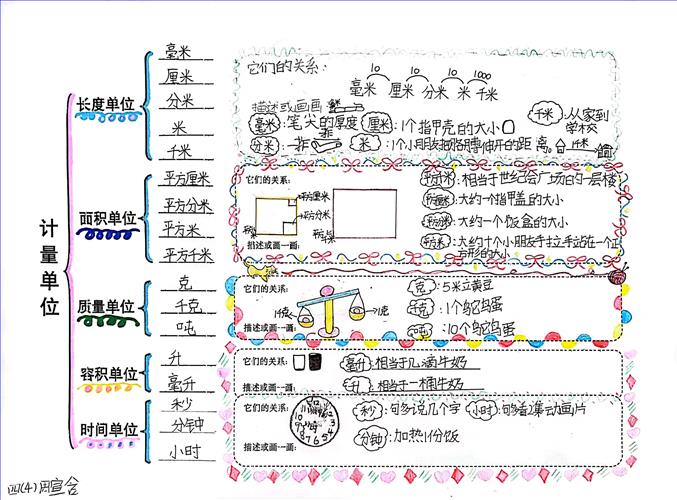 计量单位
长度单位
毫米
厘米
分米
米
千米
它们的关系:
10 10 10 1000
毫米 厘米 分米 米 千米
描述或画画
毫米:笔尖的厚度
厘米:1个指甲壳的大小
千米:从家到学校
分米:一
米:1个小朋友把胳膊伸开的距离。
千米
面积单位
平方厘米
平方分米
平方米
平方千米
它们的关系:
平方厘米
平方分米
平方米
描述或画一画:
相当于世纪绘广场的一层楼
大约一个指甲盖的大小
大约一个饭盒的大小
平方米:大约十个小朋友手拉手站在一个正方形的大小
质量单位
克
千克
吨
它们的关系:
描述或画一画:
克:5米立黄豆
千克:1个鸵鸟蛋
吨:10个鸵鸟蛋
容积单位
升
毫升
它们的关系:
描述或画一画:
毫升:相当于几滴牛奶
升:相当于一桶牛奶
时间单位
秒
分钟
小时
它们的关系:
描述或画一画:
秒:句多说几个字
小时:句看2集动画片
分钟:加热1份饭
四(4)周宣含